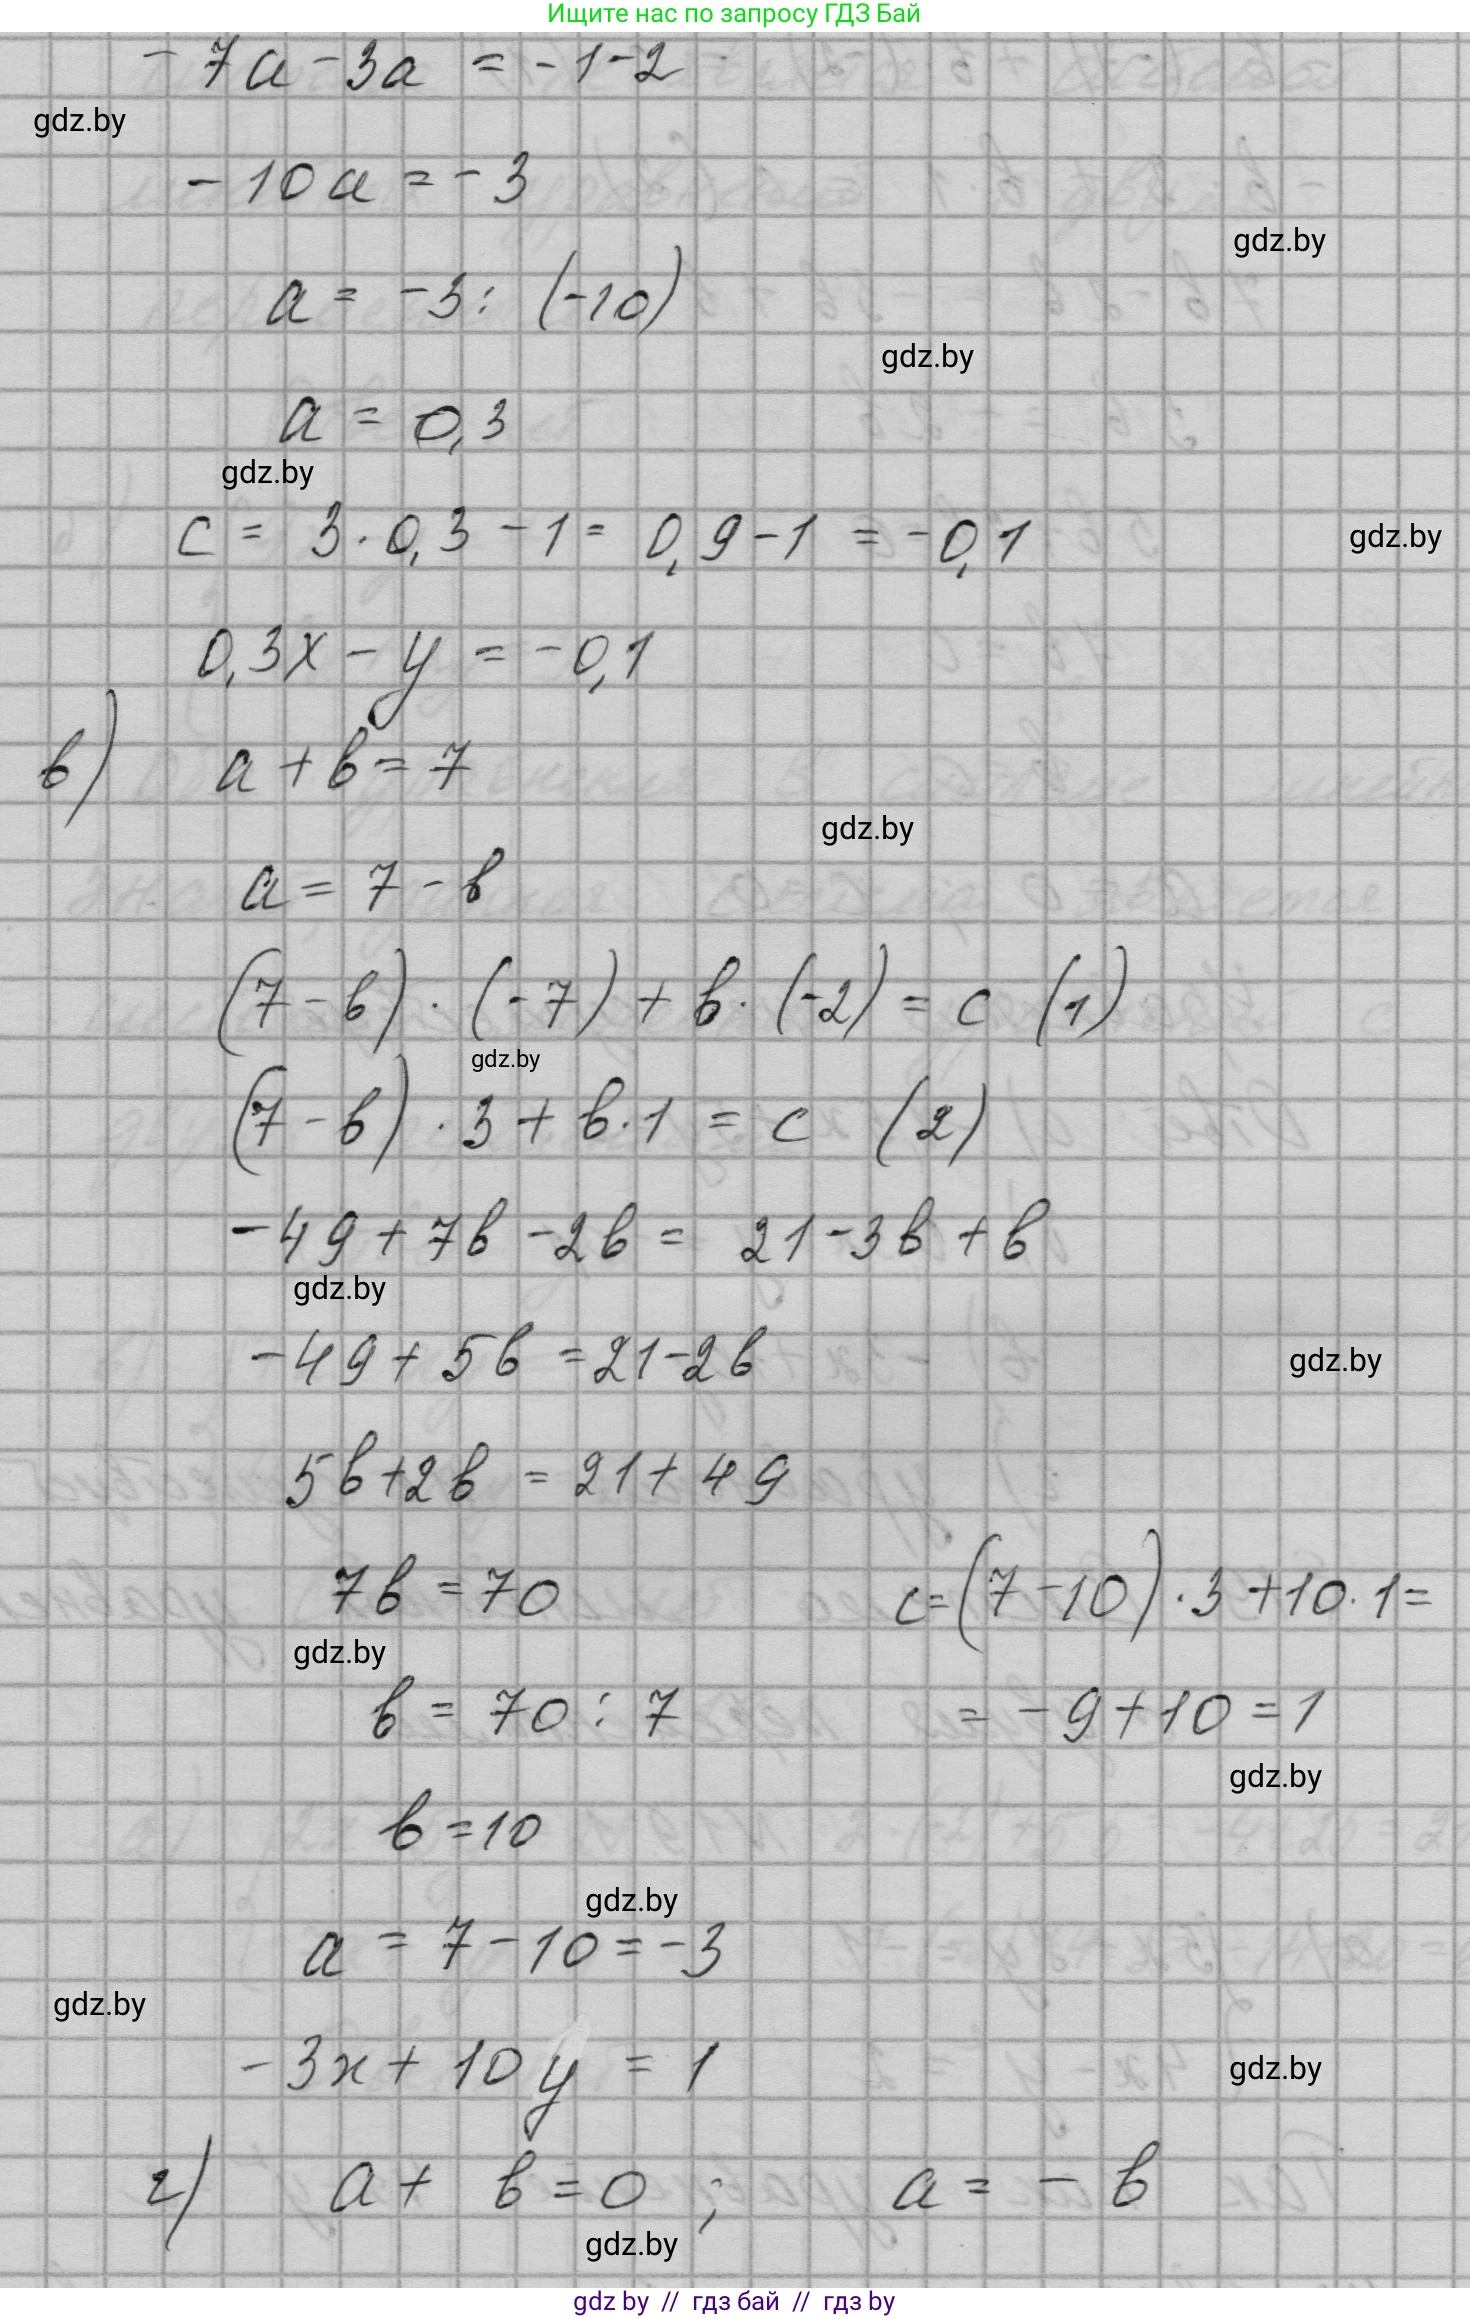 Ищите нас по запросу ГДЗ Бай
- 7a - 3a = -1 - 2
gdz.by
- 10a = -3
gdz.by
a = -3 : (-10)
gdz.by
a = 0,3
gdz.by
c = 3 · 0,3 - 1 = 0,9 - 1 = -0,1
gdz.by
0,3x - y = -0,1
в) a + b = 7
gdz.by
a = 7 - b
(7 - b) · (-7) + b · (-2) = c (1)
gdz.by
(7 - b) · 3 + b · 1 = c (2)
-49 + 7b - 2b = 21 - 3b + b
gdz.by
-49 + 5b = 21 - 2b
gdz.by
5b + 2b = 21 + 49
7b = 70 c = (7 - 10) · 3 + 10 · 1 =
gdz.by
b = 70 : 7 = -9 + 10 = 1
gdz.by
b = 10
gdz.by
a = 7 - 10 = -3
gdz.by
-3x + 10y = 1
gdz.by
г) a + b = 0 ; a = - b
gdz.by
gdz by // гдз бай // гдз by